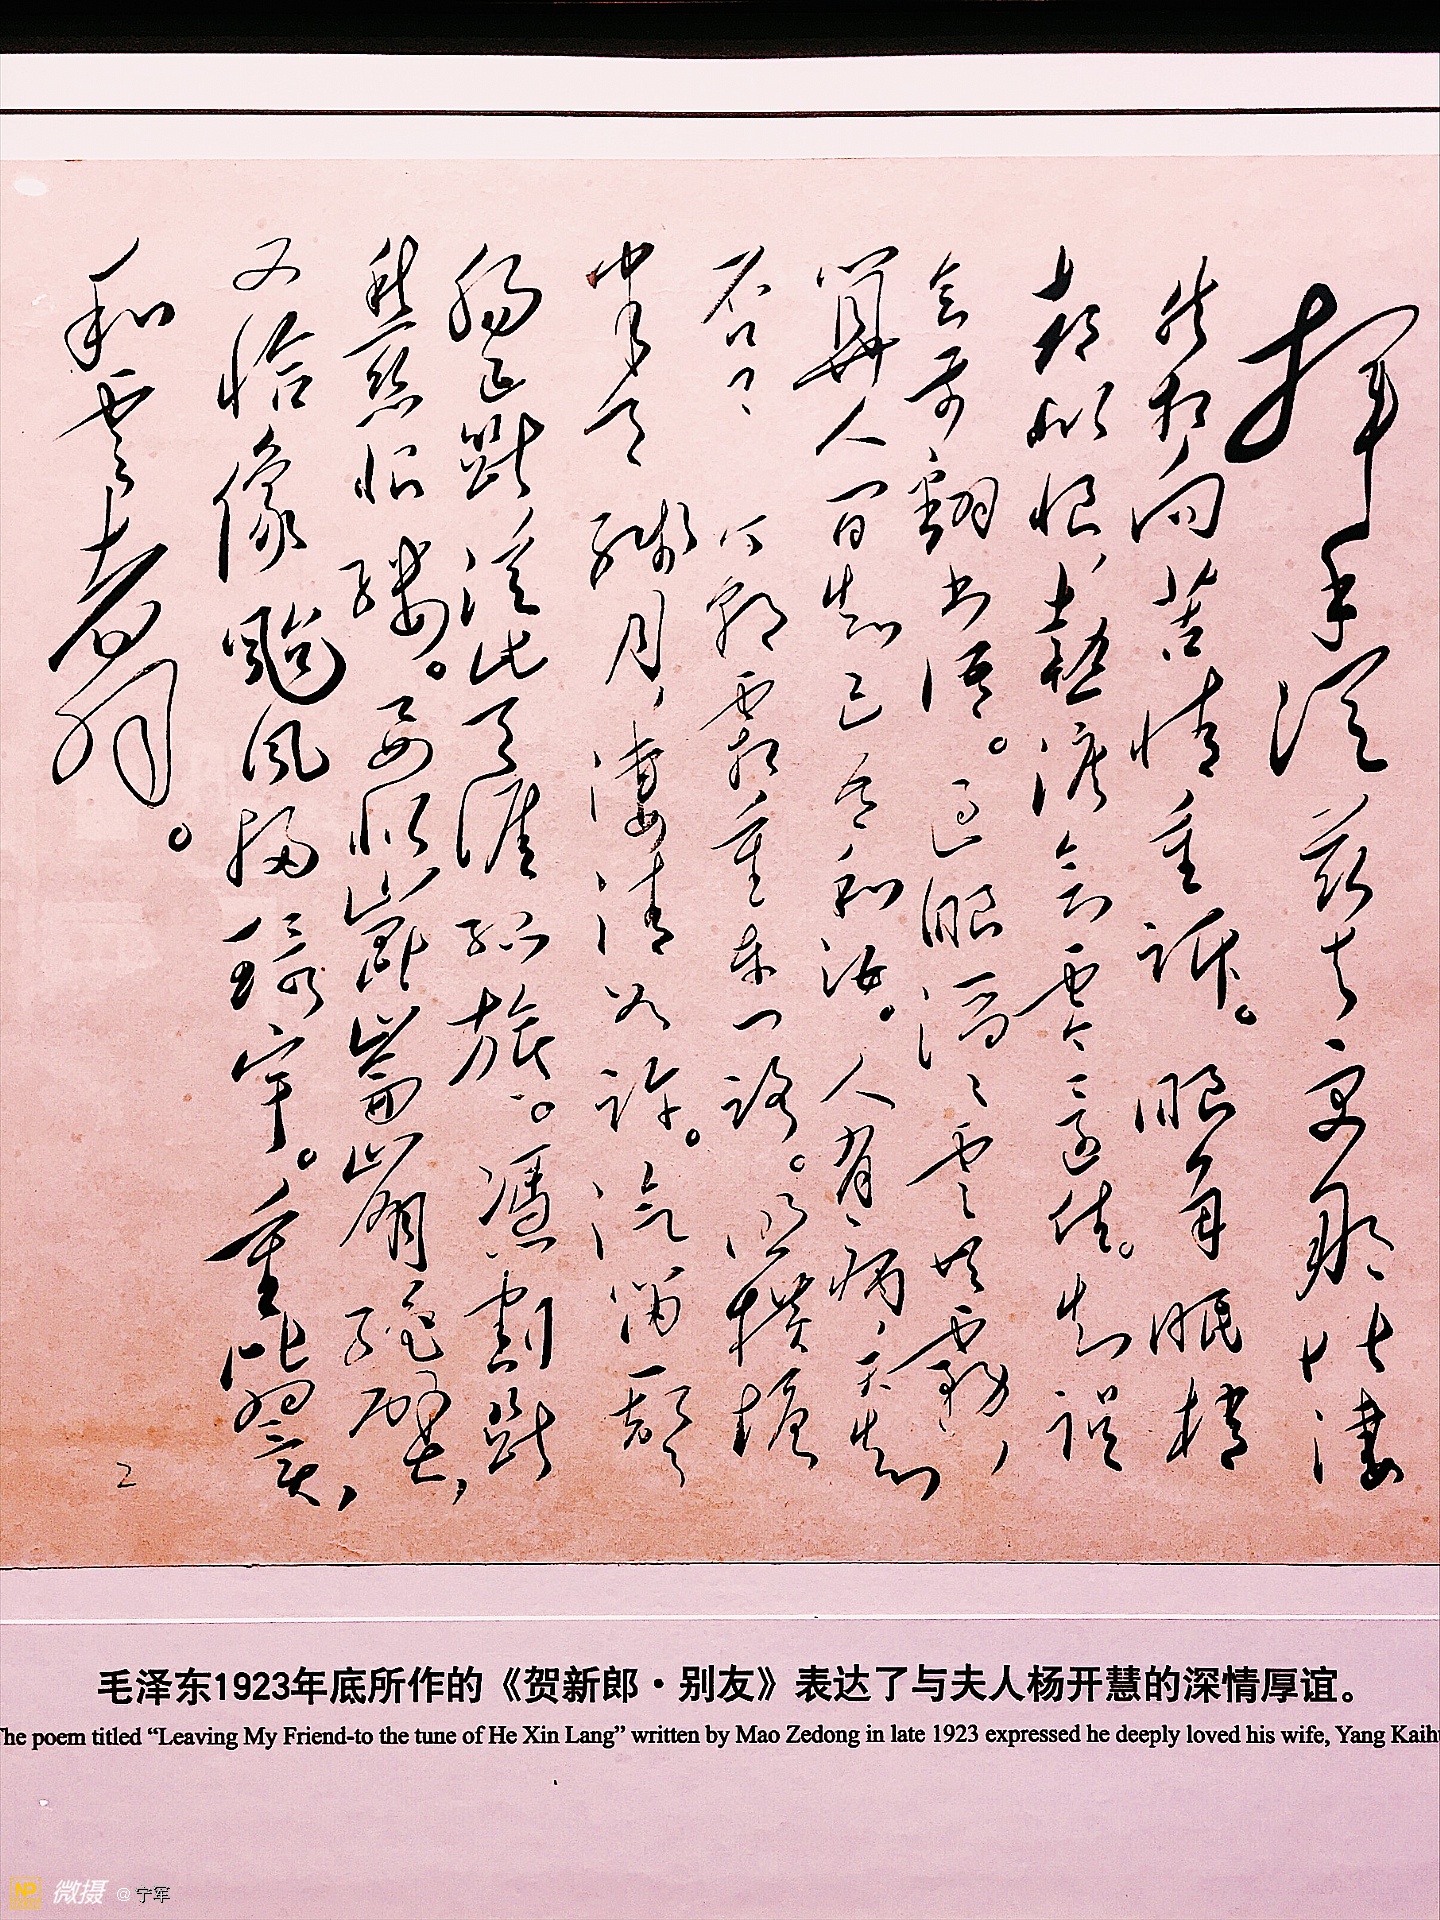 揮手從兹去更那堪凄
然相向苦情重訴。眼角眉梢
都似恨熱淚欲零還住。知誤
會前番書語。過眼滔滔雲共霧,
算人間知己吾和汝。人有病,天知
否?今朝霜重東門路。照横塘
半天殘月,凄清如許。汽笛一聲
腸已斷,從此天涯孤旅。憑割斷
愁絲恨縷。要似崑崙崩絕壁,
又恰像颱風掃寰宇。重比翼,
和雲翥。
2
毛泽东1923年底所作的《贺新郎·别友》表达了与夫人杨开慧的深情厚谊。
The poem titled “Leaving My Friend-to the tune of He Xin Lang” written by Mao Zedong in late 1923 expressed he deeply loved his wife, Yang Kaihu
NP 微摄 @宁军